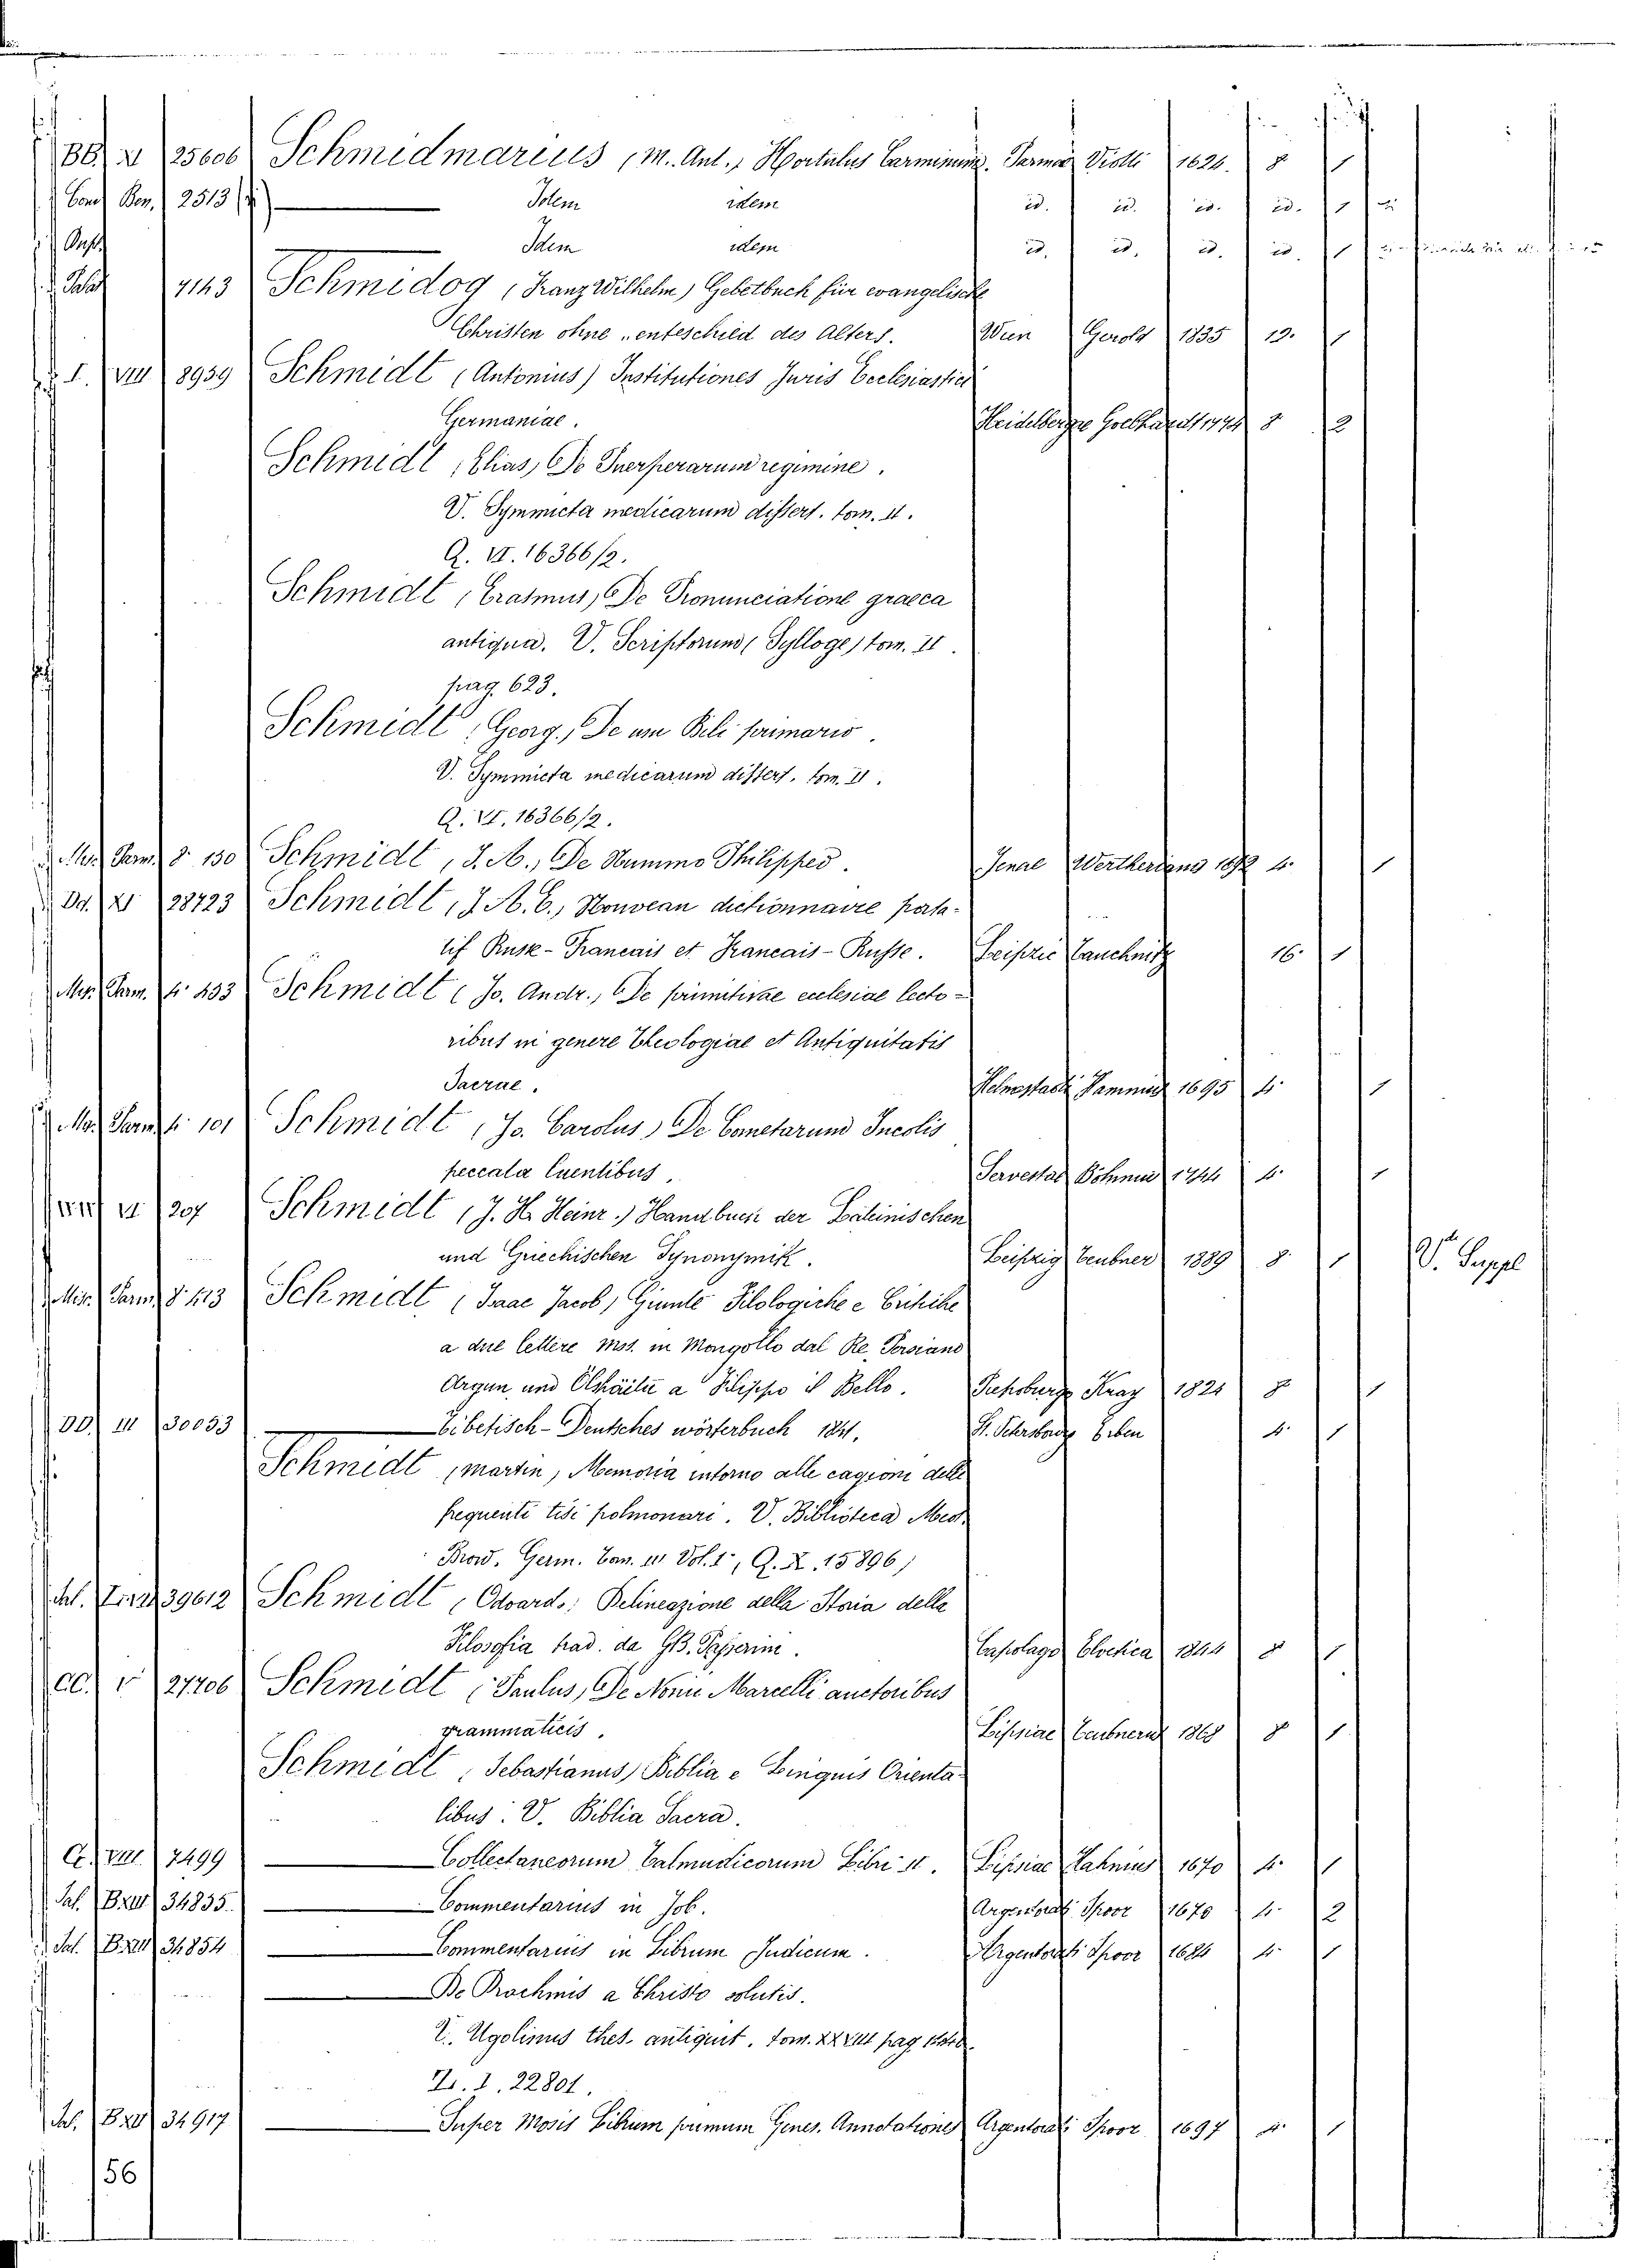 BB. XI 25606 Schmidmarius, M. Ant., Hortulus Carminum. Parmae Viotti 1624. 8 1
Cone Ben. 2513 Idem idem id. id. id. id. 1
Idem idem id. id. id. id. 1
4143 Schmidog, Franz Wilhelm) Gebetbuch für evangelische
Christen ohne enteschied des Alters. Wien Gerold 1835 12. 1
I. VIII 8939 Schmidt (Antonius) Institutiones Juris Ecclesiastici
Germaniae. Heidelbergae Goebhardt 1774 8 2
Schmidt, Elias, De Puerperarum regimine.
V. Symmicta medicarum dissert. tom. II.
Q. VI. 16366/2.
Schmidt, Erasmus, De Pronunciatione graeca
antiqua. V. Scriptorum (Sylloge) tom. II.
pag. 623.
Schmidt, Georg., De um Bili primario.
V. Symmicta medicarum dissert. tom. II.
Q. VI. 16366/2.
Misc. Parm. 8° 130 Schmidt, J. A., De Nummo Philippeo. Jenae Wertheriano 1692 4. 1
Dd. XI 28723 Schmidt, J. A. E., Nouveau dictionnaire porta-
tif Russe-Francais et Francais-Russe. Leipzic Tauchnitz 16. 1
Misc. Parm. 4° 433 Schmidt (Jo. Andr., De primitivae ecclesiae lecto-
ribus in genere Theologiae et Antiquitatis
Sacrae. Helmestadi Hammius 1695 4. 1
Misc. Parm. 4° 101 Schmidt, Jo. Carolus) De Cometarum Incolis
peccata luentibus. Servestae Böhmii 1744 4. 1
VI 207 Schmidt, J. H. Heinr.) Handbuch der Lateinischen
und Griechischen Synonymik. Leipzig Teubner 1889 8. 1 V. Suppl
Misc. Parm. 8° 413 Schmidt (Isaac Jacob) Giunte Filologiche e Critiche
a due lettere mss. in Mongollo dal Re Persiano
Argun und Olshäitu a Filippo il Bello. Petroburgo Kray 1824 8 1
DD. III 30053 Tibetisch-Deutsches wörterbuch 1841. St. Petersburg Erben 4. 1
Schmidt, Martin, Memoria intorno alle cagioni delle
frequenti tisi polmonari. V. Biblioteca Med.
Brow. Germ. Tom. III Vol. 1°, Q. X. 15896)
39612 Schmidt, Odoardo; Delineazione della Storia della
Filosofia trad. da GB. Passerini. Capolago Elvetica 1844 8 1
CC. V 27706 Schmidt (Paulus, De Nonii Marcelli auctoribus
grammaticis. Lipsiae Teubnerus 1868 8 1
Schmidt, Sebastianus, Biblia e Linguis Orienta-
libus: V. Biblia Sacra.
VIII. 7499 Collectaneorum Talmudicorum Libri II. Lipsiae Hahnius 1670 4. 1
Pal. BXIII 34835 Commentarius in Job. Argentorati Spoor 1670 4. 2
Pal. BXIII 34854 Commentarius in Librum Judicum. Argentorati Spoor 1684 4. 1
De Prochmis a Christo solutis.
V. Ugolinus thes. antiquit. tom. XXVIII pag.
Zz. I. 22801.
34917 Super Mosis Librum primum Genes. Annotationes Argentorati Spoor 1697 4. 1
56